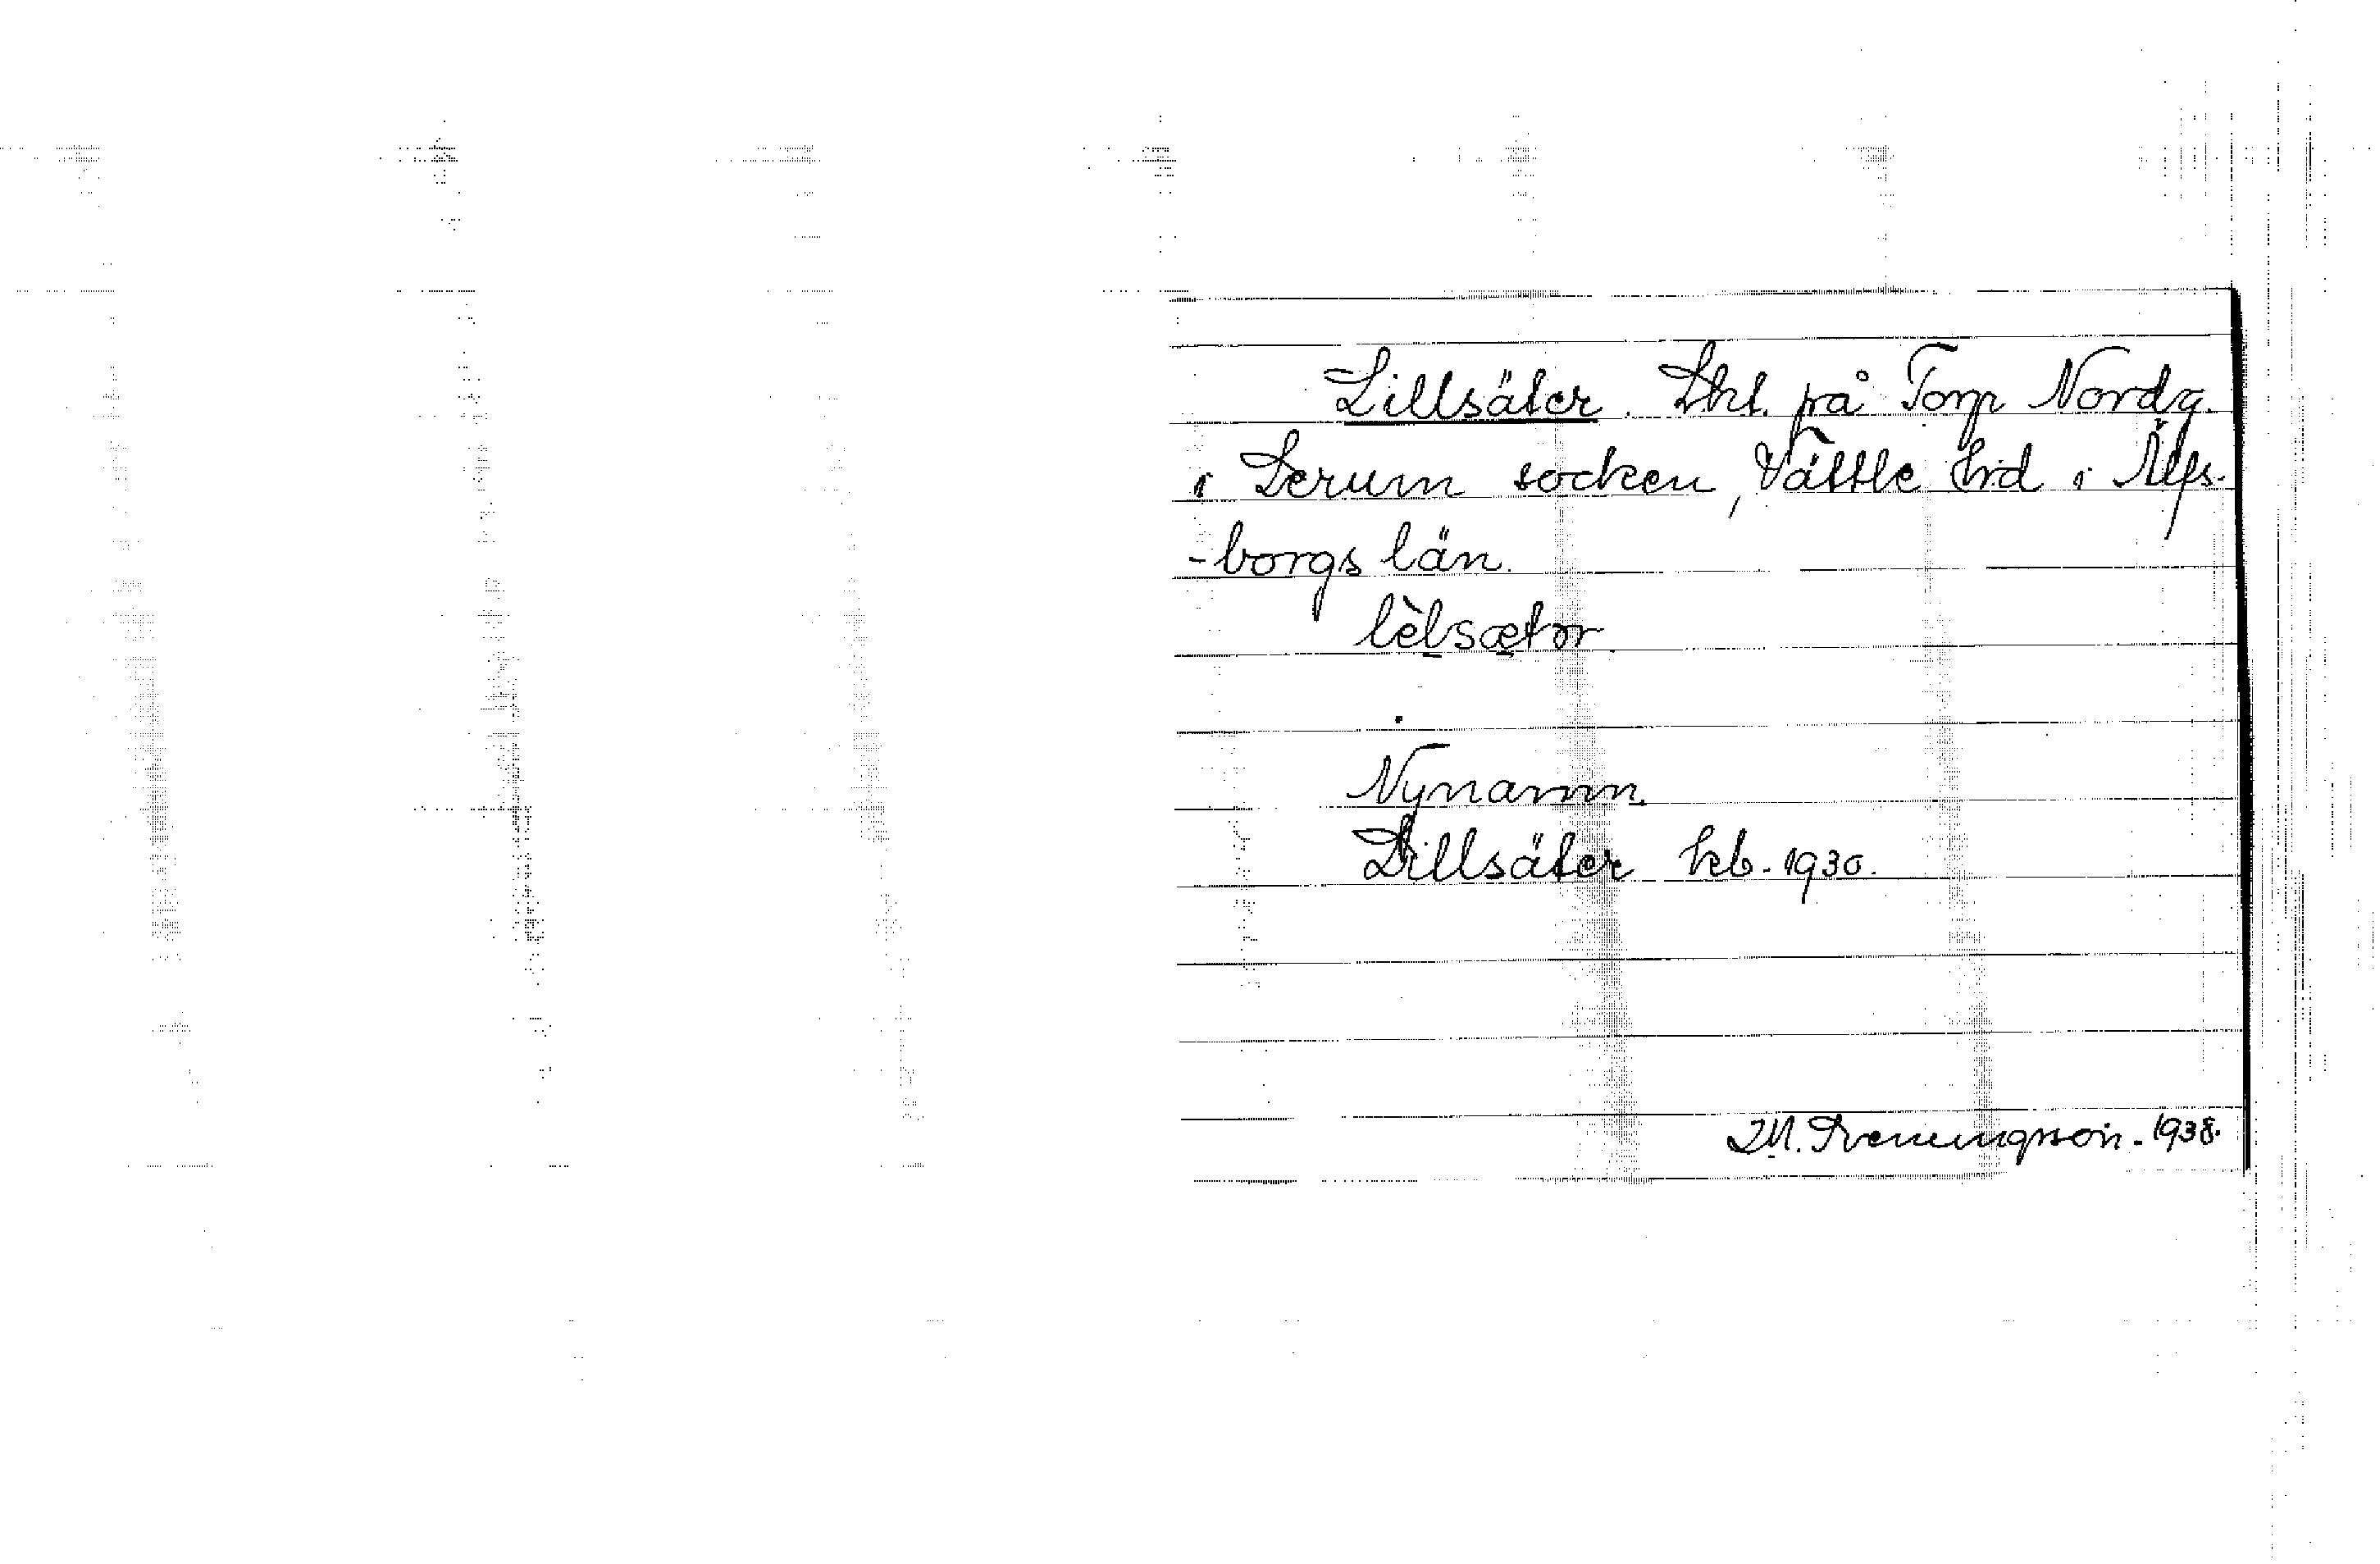 Lillsäter. Lht. på Torp Nordg.
i Lerum socken, Vättle hrd i Älfs-
-borgs län.
lèlsætər
Nynamn.
Lillsäter kb. 1930.
1938.